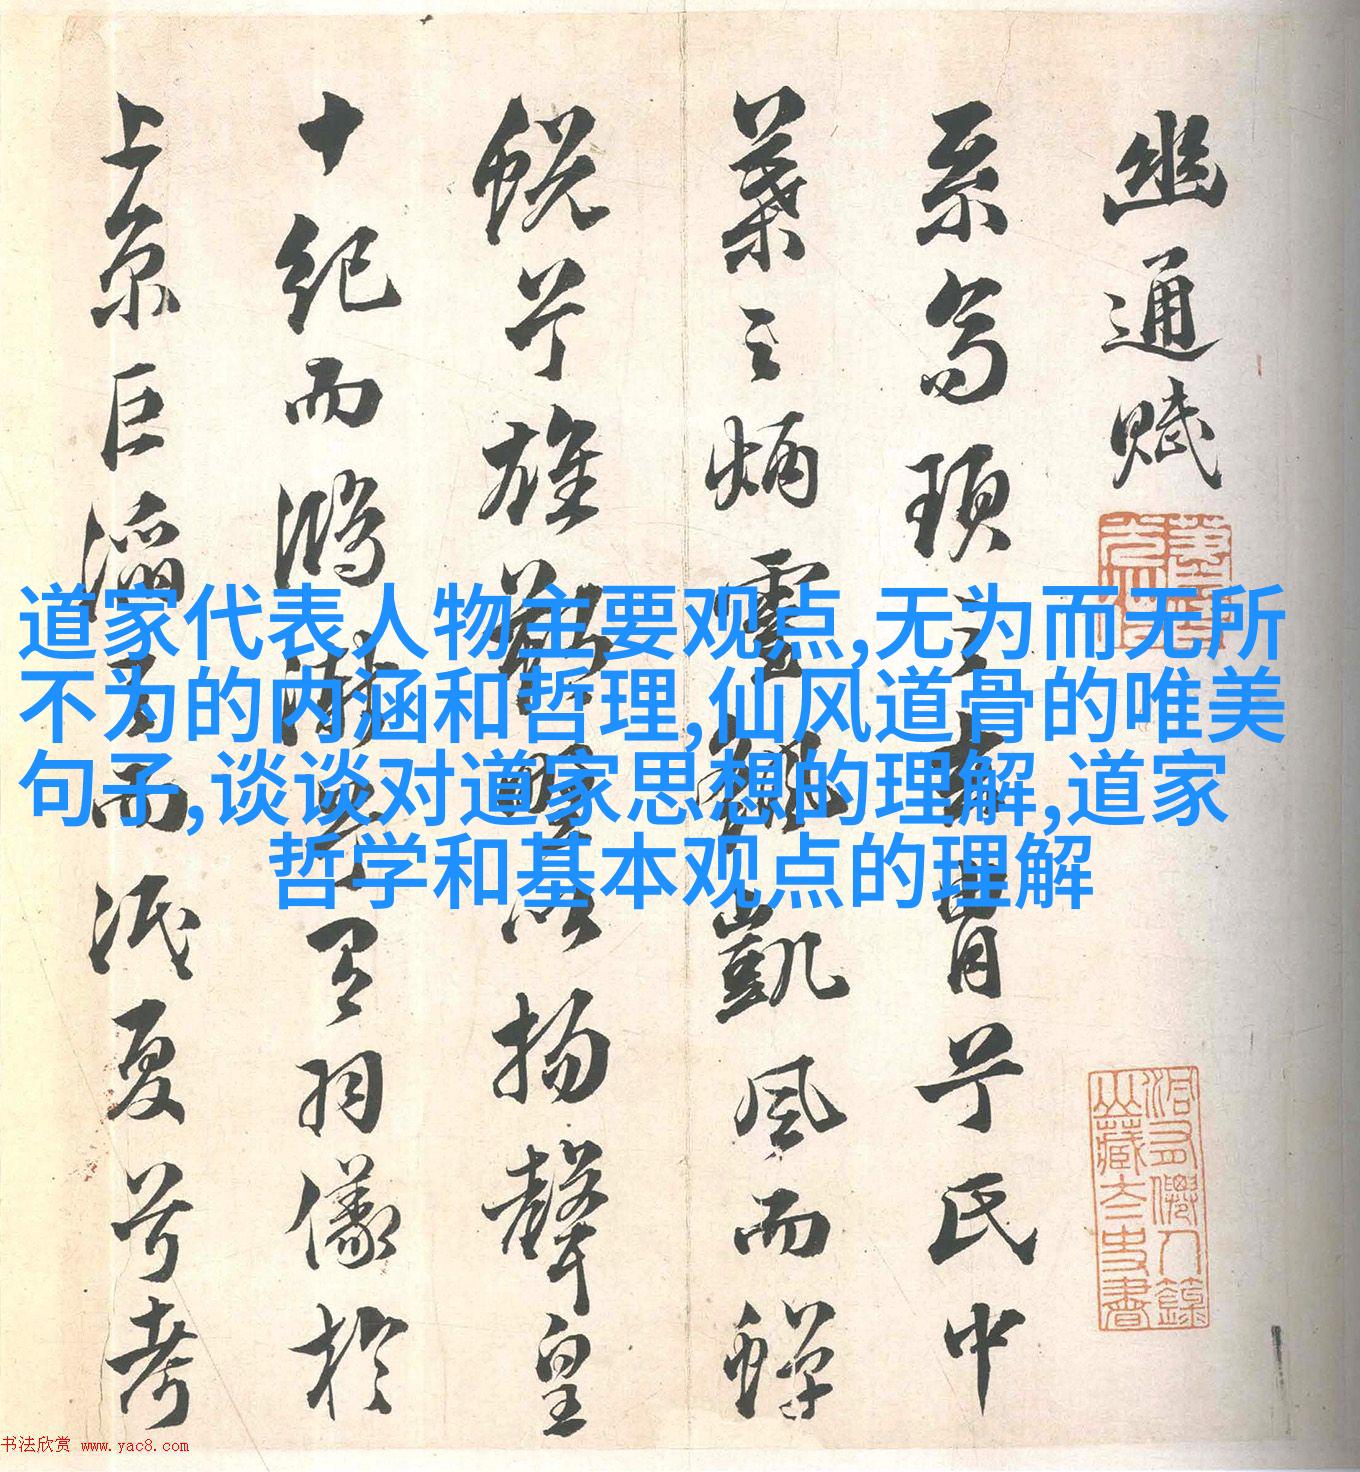 幽通賦
系高頊之玄胄兮氏中
葉之炳靈繇凱風而蟬
蛻兮雄朔野以揚聲皇
十紀而鴻漸兮有羽儀於
上京巨滔天而泯夏兮考
道家代表人物主要观点,无为而无所
不为的内涵和哲理,仙风道骨的唯美
句子,谈谈对道家思想的理解,道家
哲学和基本观点的理解
书法欣赏 www.yac8.com